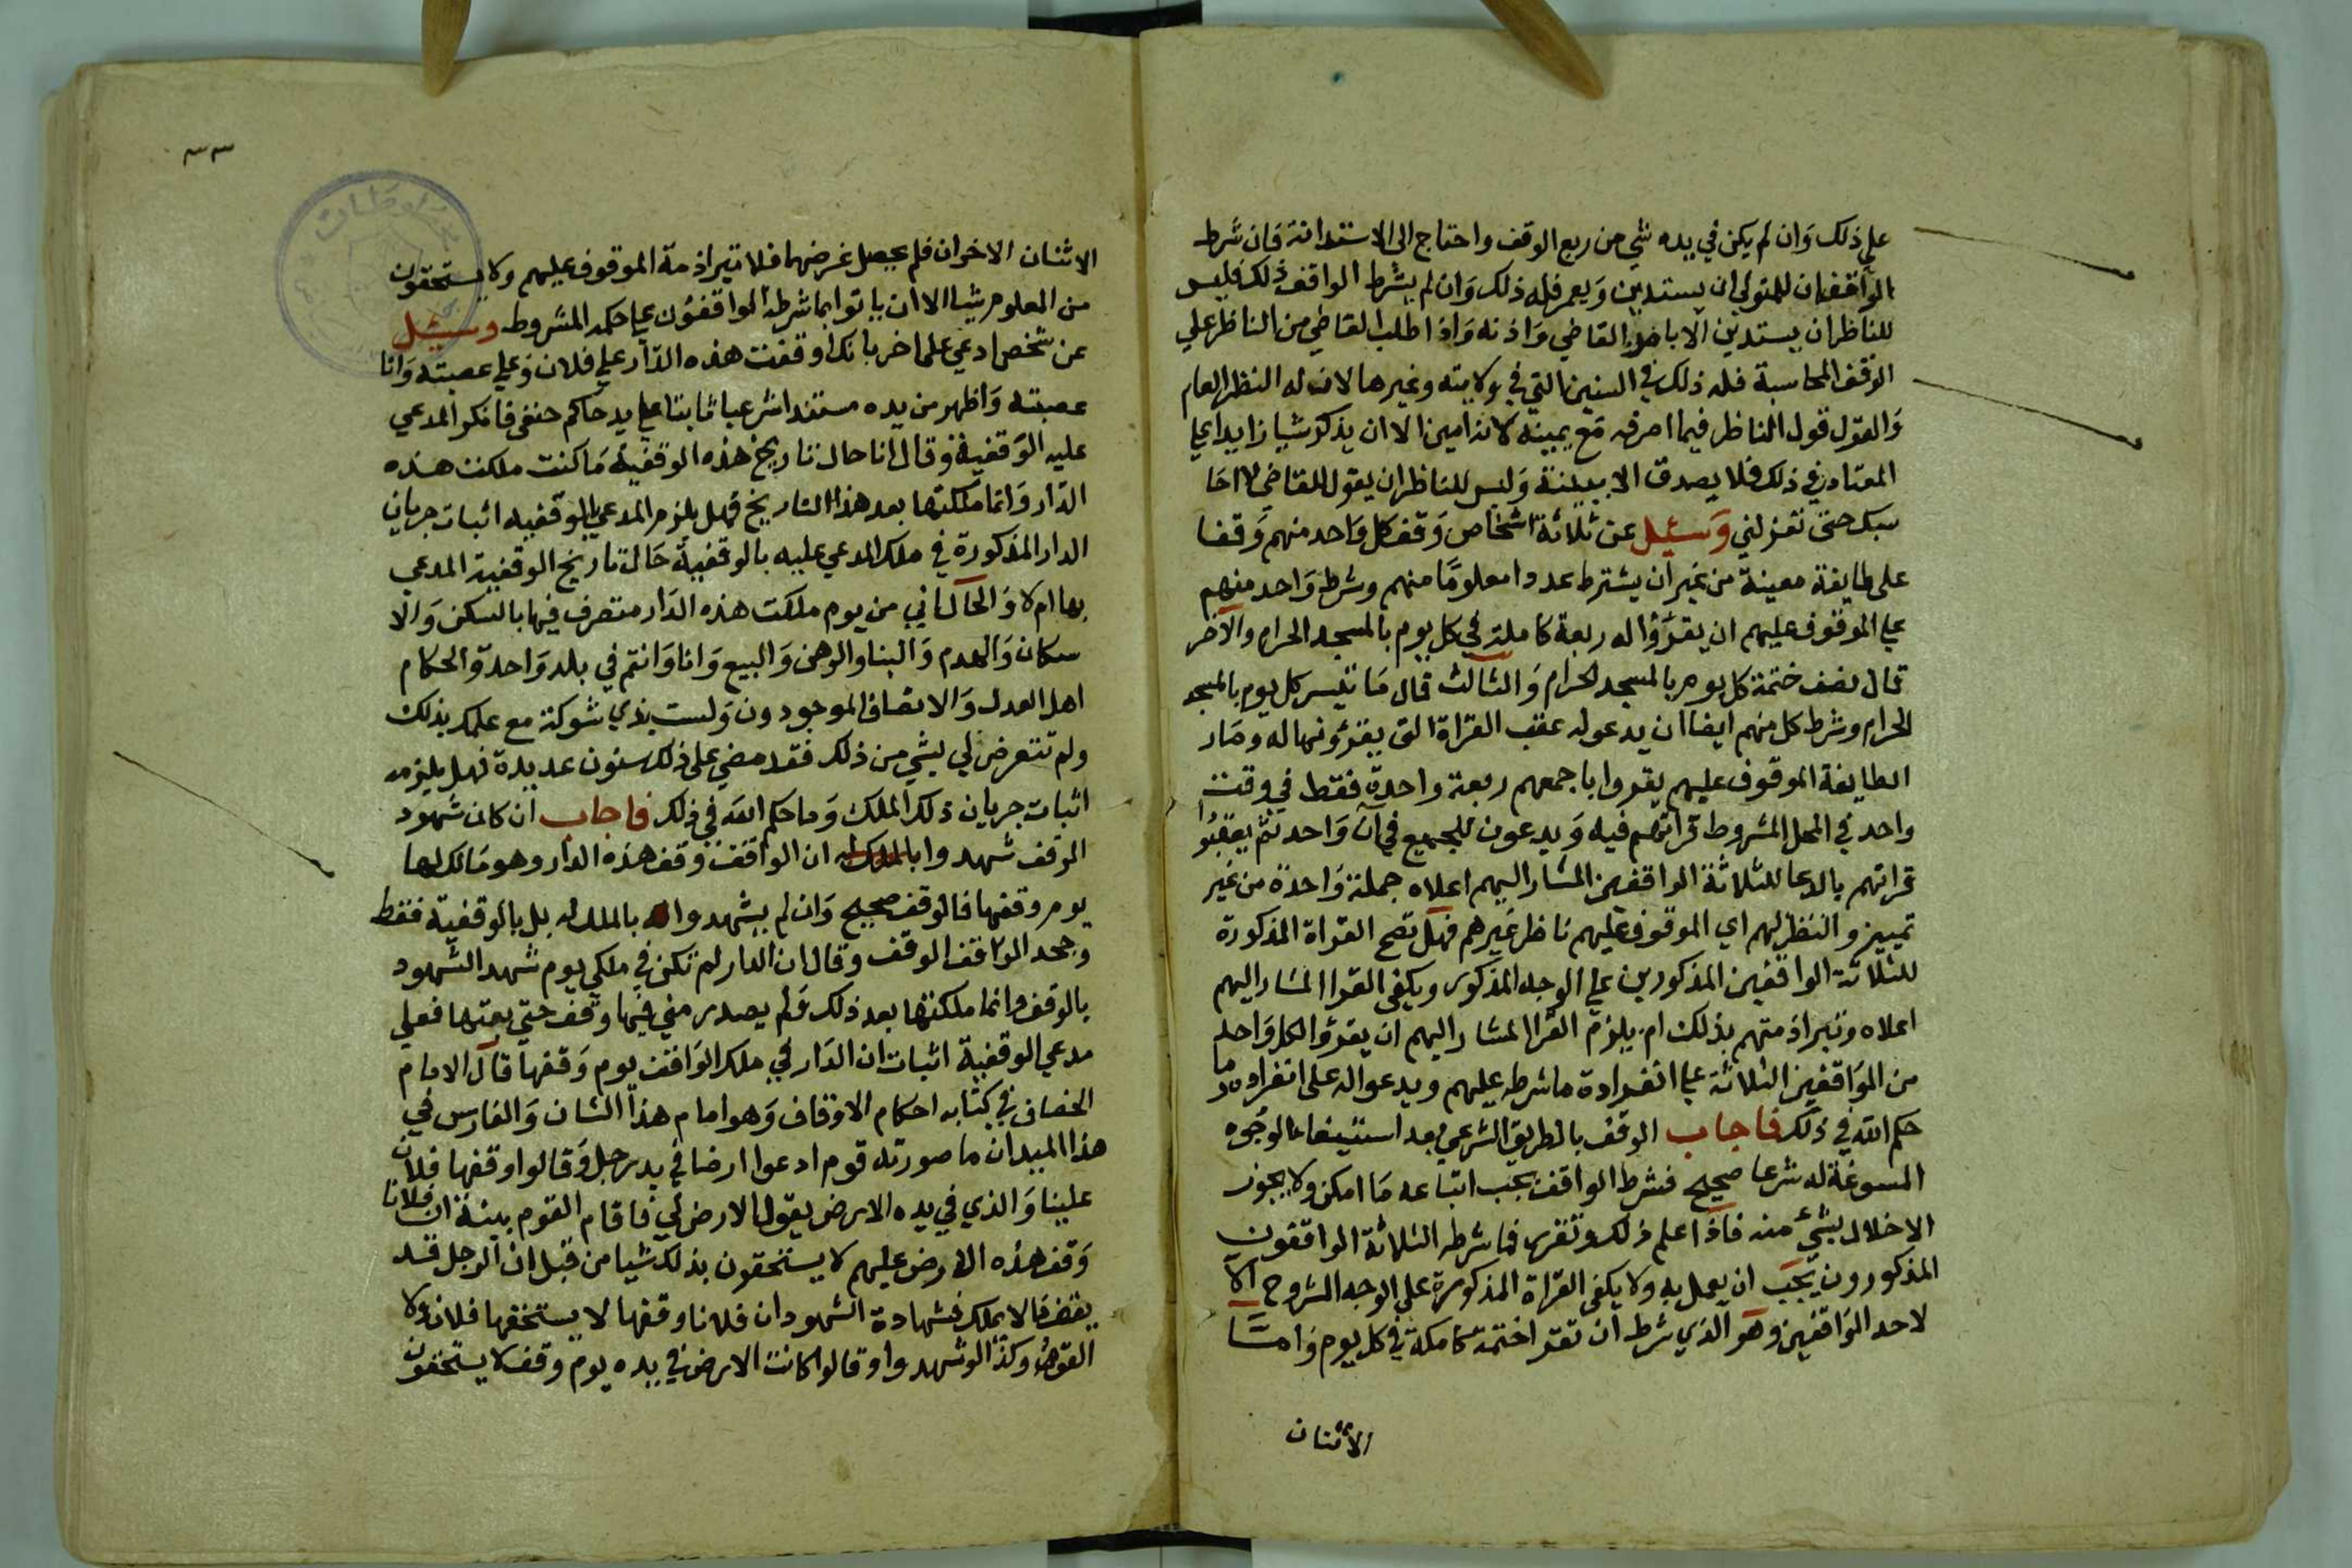 علي ذلك وان لم يكن في يده شي من ريع الوقف واحتاج الى الاستدانة فان شرط
الواقف ان للمتولي ان يستدين ويعمر فله ذلك وان لم يشرط الواقف ذلك فليس
للناظر ان يستدين الا بامر القاضي واذنه واذا طلب القاضي من الناظر علي
الوقف المحاسبة فله ذلك في السنين التي في ولايته وغيرها لان له النظر العام
والقول قول الناظر فيما صرفه مع يمينه لانه امين الا ان يذكر شيا زايدا علي
المعتاد في ذلك فلا يصدق الا ببينة وليس للناظر ان يقول للقاضي لا احا
سبك حتى تعزلني وسئل عن ثلاثة اشخاص وقف كل واحد منهم وقفا
على طايفة معينة من غير ان يشترط عددا معلوما منهم وشرط واحد منهم
علي الموقوف عليهم ان يقرؤا له ربعة كاملة في كل يوم بالمسجد الحرام والآخر
قال نصف ختمة كل يوم بالمسجد الحرام والثالث قال ما تيسر كل يوم بالمسجد
الحرام وشرط كل منهم ايضا ان يدعو له عقب القراة التي يقرؤنها له وصار
الطايفة الموقوف عليهم يقروا باجمعهم ربعة واحدة فقط في وقت
واحد في المحل المشروط قراتهم فيه ويدعون للجميع في آن واحد ثم يعقبوا
قراتهم بالدعا للثلاثة الواقفين المشار اليهم اعلاه جملة واحدة من غير
تمييز والنظر لهم اي الموقوف عليهم ناظر غيرهم فهل تصح القراة المذكورة
للثلاثة الواقفين المذكورين علي الوجه المذكور ويكفي القرا المشار اليهم
اعلاه وتبرا ذمتهم بذلك ام يلزم القرا المشار اليهم ان يقرؤا لكل واحد
من الواقفين الثلاثة علي انفراده ما شرطه عليهم ويدعوا له على انفراده وما
حكم الله في ذلك فاجاب الوقف بالطريق الشرعي بعد استيفا الوجوه
المسوغة له شرعا صحيح فشرط الواقف يجب اتباعه ما امكن ولا يجوز
الاخلال بشئ منه فاذا علم ذلك وتقرر فما شرطه الثلاثة الواقفون
المذكورون يجب ان يعمل به ولا يكفي القراة المذكورة على الوجه المشروح الا
لاحد الواقفين وهو الذي شرط ان تقرا ختمة كاملة في كل يوم وامتا
الاثنان
٣٣
الاثنان الاخران فلم يحصل غرضهما فلا تبرا ذمة الموقوف عليهم ولا يستحقون
من المعلوم شيا الا ان ياتوا بما شرطه الواقفون علي حكمه المشروط وسئل
عن شخص ادعي على اخر بانك اوقفت هذه الدار علي فلان وعلي عصبته وانا
عصبته واظهر من يده مستندا شرعيا ثابتا علي يد حاكم حنفي فانكر المدعي
عليه الوقفية وقال انا حال تاريخ هذه الوقفية ما كنت ملكت هذه
الدار وانما ملكتها بعد هذا التاريخ فهل يلزم المدعي بالوقفيه اثبات جريان
الدار المذكورة في ملك المدعي عليه بالوقفية حال تاريخ الوقفية المدعي
بها ام لا والحال اني من يوم ملكت هذه الدار متصرف فيها بالسكن والا
سكان والهدم والبنا والرهن والبيع وانا وانتم في بلد واحدة والحكام
اهل العدل والانصاف الموجودون ولست بذي شوكة مع علمك بذلك
ولم تتعرض لي بشي من ذلك فقد مضي على ذلك سنون عديدة فهل يلزمه
اثبات جريان ذلك الملك وما حكم الله في ذلك فاجاب ان كان شهود
الوقف شهدوا بالملك له ان الواقف وقف هذه الدار وهو مالك لها
يوم وقفها فالوقف صحيح وان لم يشهدوا بالملك له بل بالوقفية فقط
وجحد الواقف الوقف وقال ان الدار لم تكن في ملكي يوم شهد الشهود
بالوقف وانما ملكتها بعد ذلك ولم يصدر مني فيها وقف حتى بعتها فعلي
مدعي الوقفية اثبات ان الدار في ملك الواقف يوم وقفها قال الامام
الخصاف في كتابه احكام الاوقاف وهو امام هذا الشان والفارس في
هذا الميدان ما صورته قوم ادعوا ارضا في يد رجل وقالوا وقفها فلان
علينا والذي في يده الارض يقول الارض لي فاقام القوم بينة ان فلانا
وقف هذه الارض عليهم لا يستحقون بذلك شيا من قبل ان الرجل قد
يقف مالا يملك فشهادة الشهود ان فلانا وقفها لا يستحقها فلان ولا
القوم وكذا لو شهدوا وقالوا كانت الارض في يده يوم وقف لا يستحقون